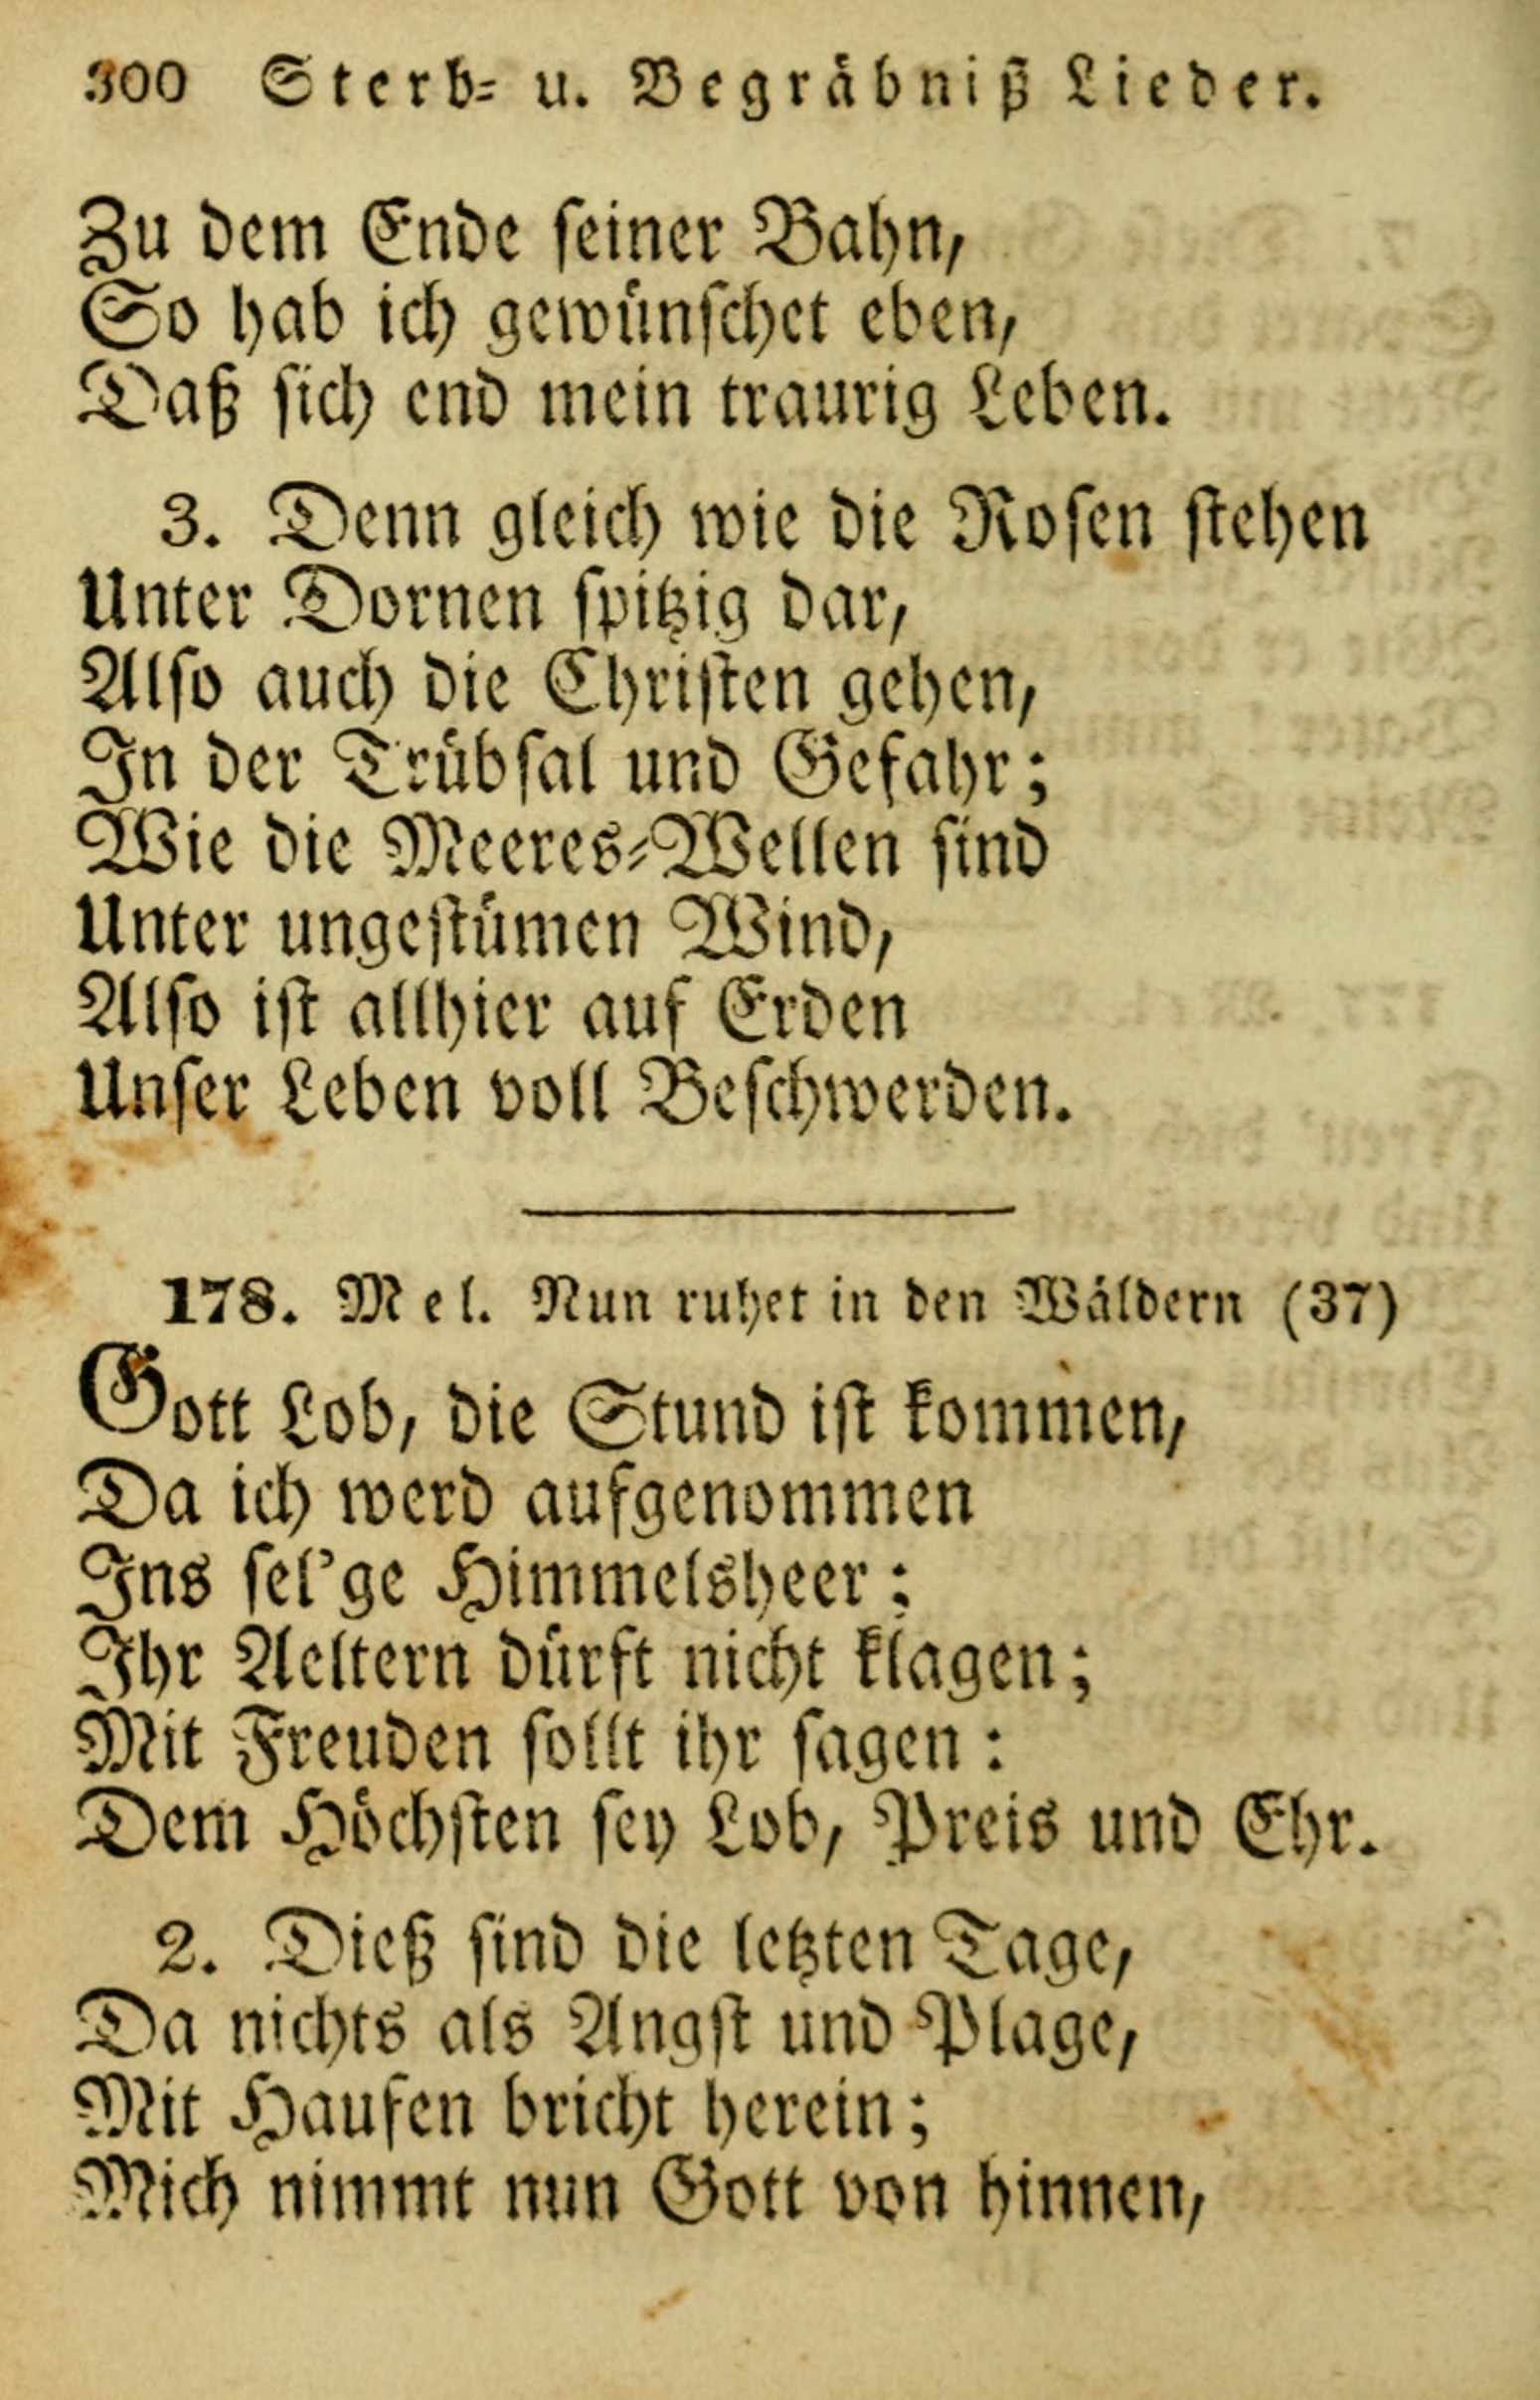 300 Sterb= u. Begräbniß Lieder.
Zu dem Ende seiner Bahn,
So hab ich gewünschet eben,
Daß sich end mein traurig Leben.
3. Denn gleich wie die Rosen stehen
Unter Dornen spitzig dar,
Also auch die Christen gehen,
In der Trübsal und Gefahr;
Wie die Meeres=Wellen sind
Unter ungestümen Wind,
Also ist allhier auf Erden
Unser Leben voll Beschwerden.
178. Mel. Nun ruhet in den Wäldern (37)
Gott Lob, die Stund ist kommen,
Da ich werd aufgenommen
Ins sel'ge Himmelsheer;
Ihr Aeltern dürft nicht klagen;
Mit Freuden sollt ihr sagen:
Dem Höchsten sey Lob, Preis und Ehr.
2. Dieß sind die letzten Tage,
Da nichts als Angst und Plage,
Mit Haufen bricht herein;
Mich nimmt nun Gott von hinnen,